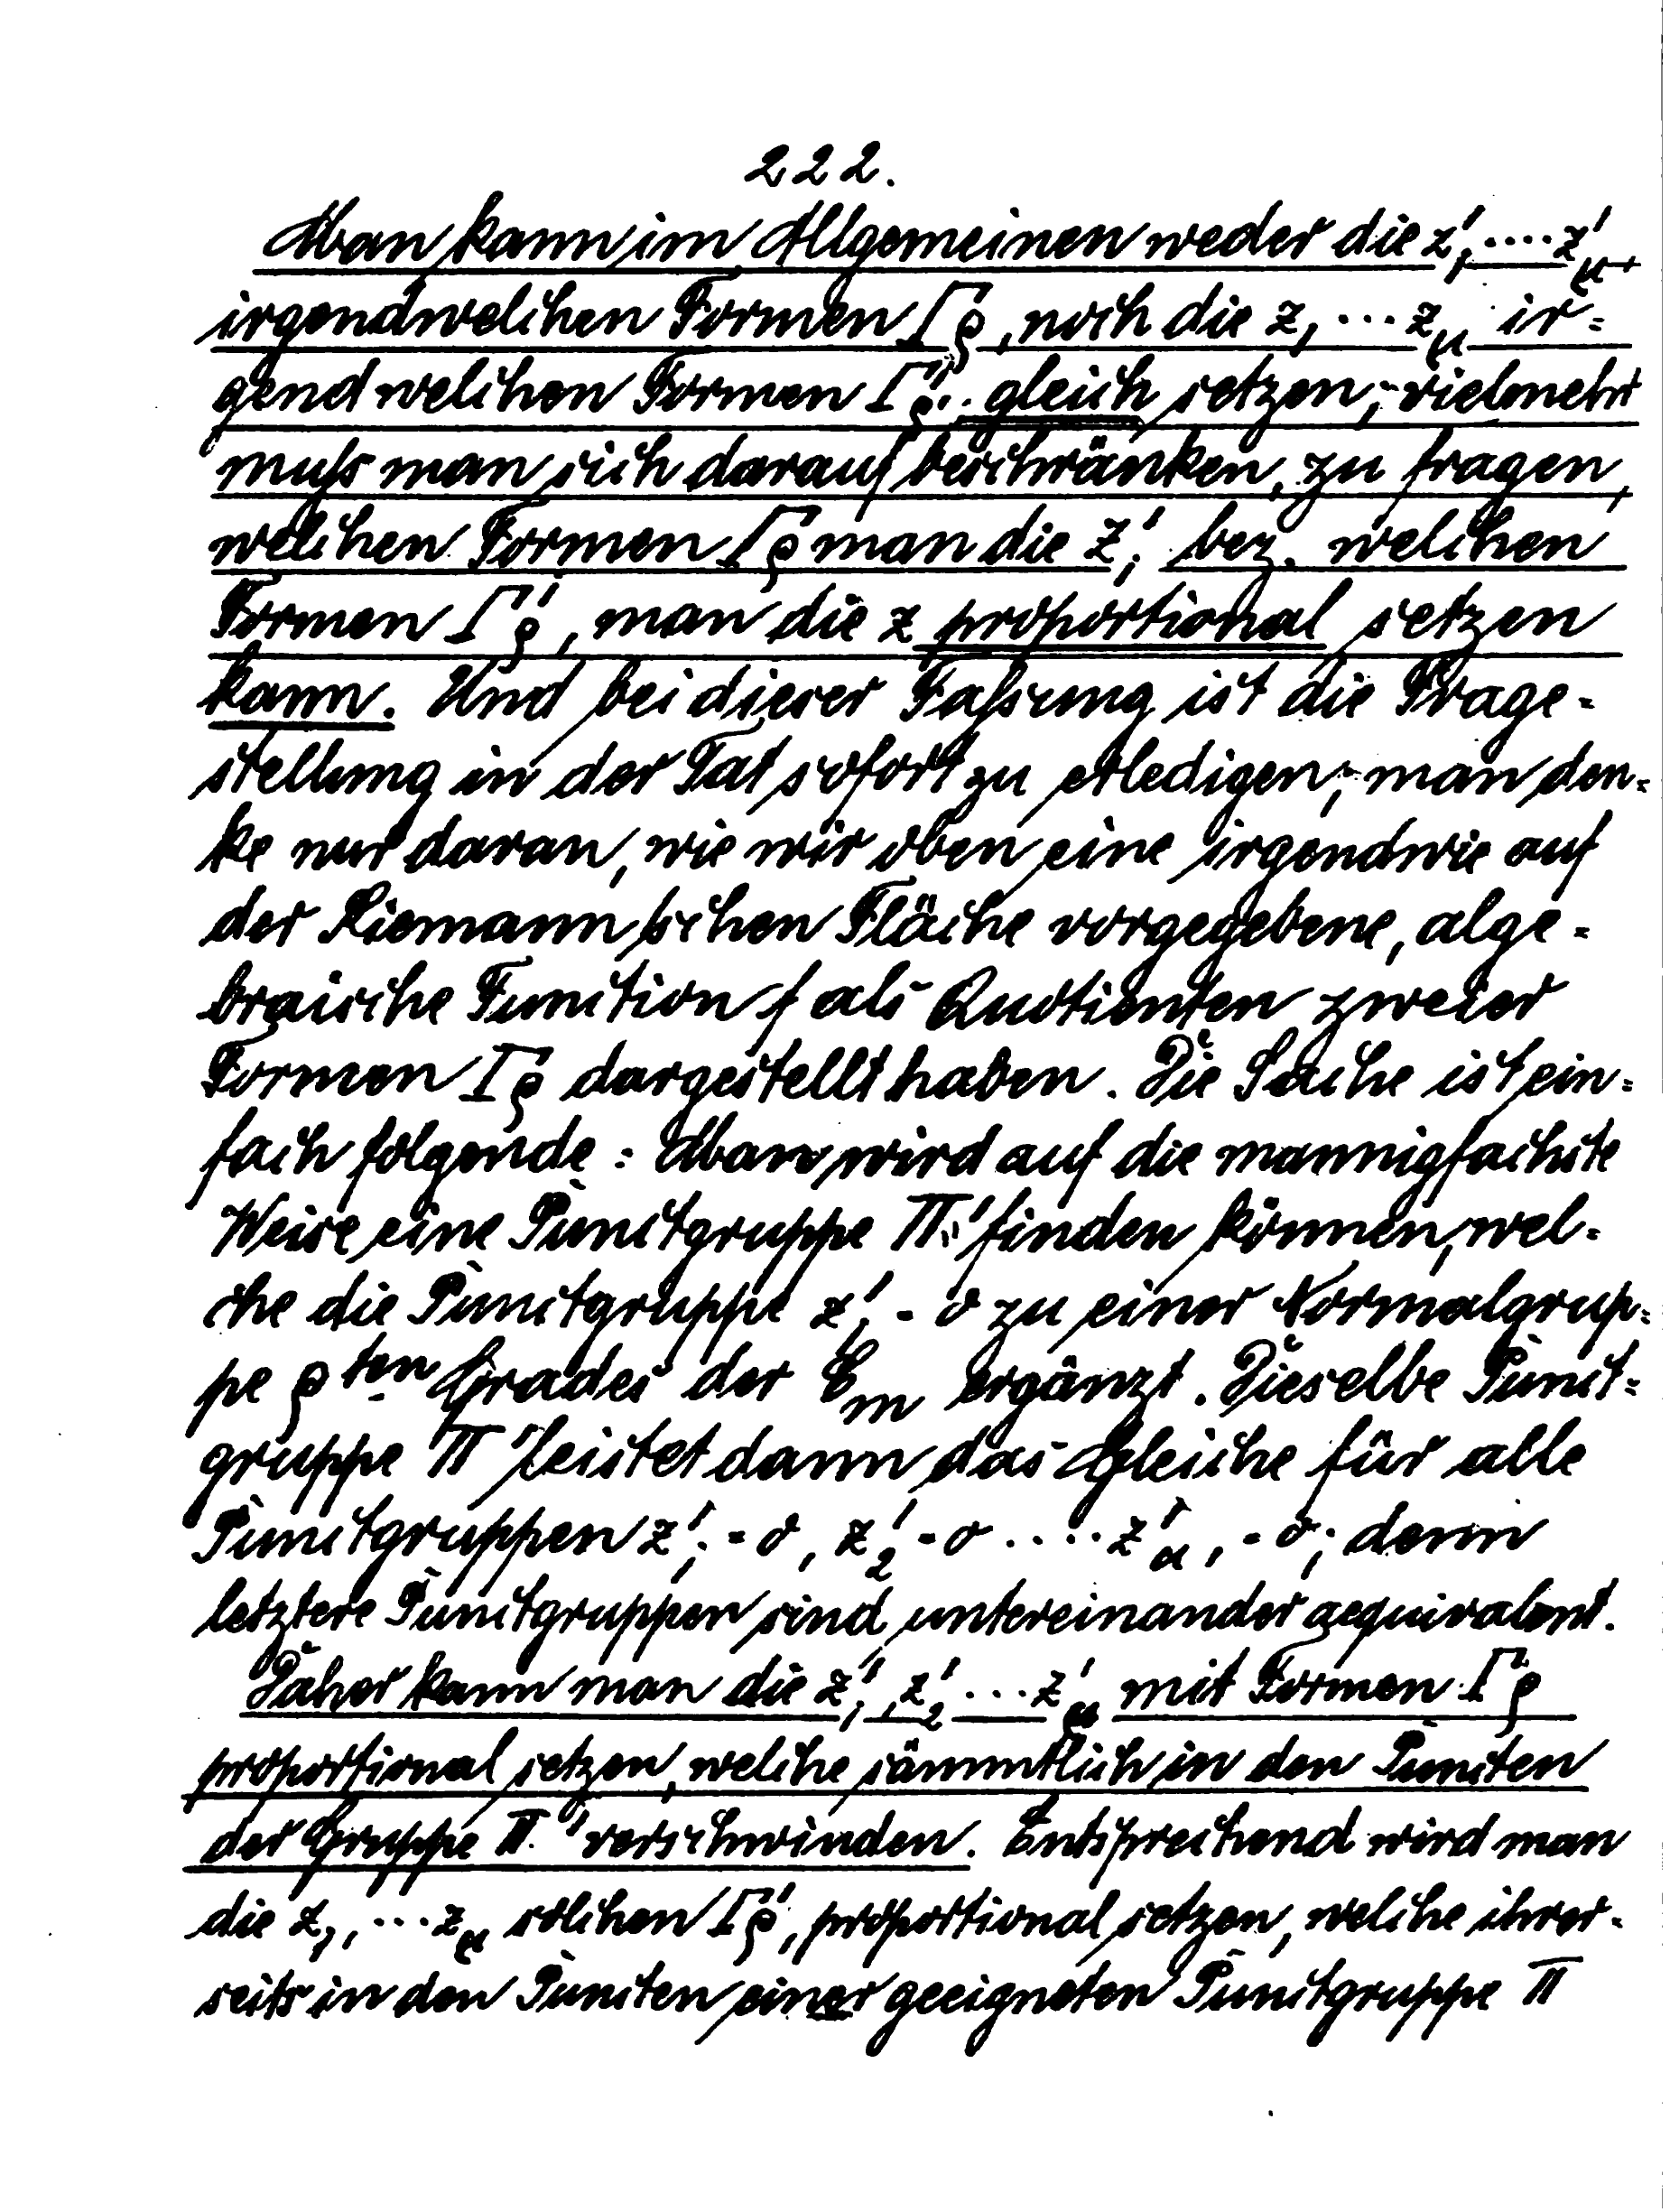 222.
Man kann im Allgemeinen weder die z'₁, .... z'_μ'
irgendwelchen Formen Γ_ρ, noch die z₁ ... z_μ ir=
gend welchen Formen Γ'_ρ' gleich setzen; vielmehr
muß man sich darauf beschränken, zu fragen,
welchen Formen Γ_ρ man die z'₁ bez. welchen
Formen Γ'_ρ' man die z proportional setzen
kann. Und bei dieser Faßung ist die Frage-
stellung in der Tat sofort zu erledigen; man den-
ke nur daran, wie wir oben eine irgendwie auf
der Riemann'schen Fläche vorgegebene, alge-
braische Function f als Quotienten zweier
Formen Γ_ρ dargestellt haben. Die Sache ist ein=
fach folgende: Man wird auf die mannigfachste
Weise eine Punctgruppe Π' finden können, wel-
che die Punctgruppe z'₁ = 0 zu einer Normalgrup=
pe ρ ten Grades der C_m ergänzt. Dieselbe Punct=
gruppe Π' leistet dann das Gleiche für alle
Punctgruppen z'₁ = 0, z'₂ = 0 .... z'_μ' = 0; denn
letztere Punctgruppen sind untereinander aequivalent.
Daher kann man die z'₁, z'₂ ... z'_μ' mit Formen Γ_ρ
proportional setzen, welche sämmtlich in den Puncten
der Gruppe Π' verschwinden. Entsprechend wird man
die z₁, ... z_μ solchen Γ'_ρ' proportional setzen, welche ihrer-
seits in den Puncten einer geeigneten Punctgruppe Π